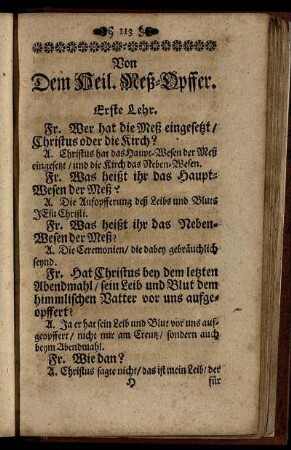 113
Von
Dem Heil. Meß-Opffer.
Erste Lehr.
Fr. Wer hat die Meß eingesetzt/
Christus oder die Kirch?
A. Christus hat das Haupt-Wesen der Meß
eingesetzt / und die Kirch das Neben-Wesen.
Fr. Was heißt ihr das Haupt-
Wesen der Meß?
A. Die Aufopfferung deß Leibs und Bluts
JEsu Christi.
Fr. Was heißt ihr das Neben-
Wesen der Meß?
A. Die Ceremonien/ die dabey gebräuchlich
seynd.
Fr. Hat Christus bey dem letzten
Abendmahl/ sein Leib und Blut dem
himmlischen Vatter vor uns aufge-
opffert?
A. Ja er hat sein Leib und Blut vor uns auf-
geopffert/ nicht nur am Creutz/ sondern auch
beym Abendmahl.
Fr. Wie dan?
A. Christus sagte nicht/ das ist mein Leib/ der
H für